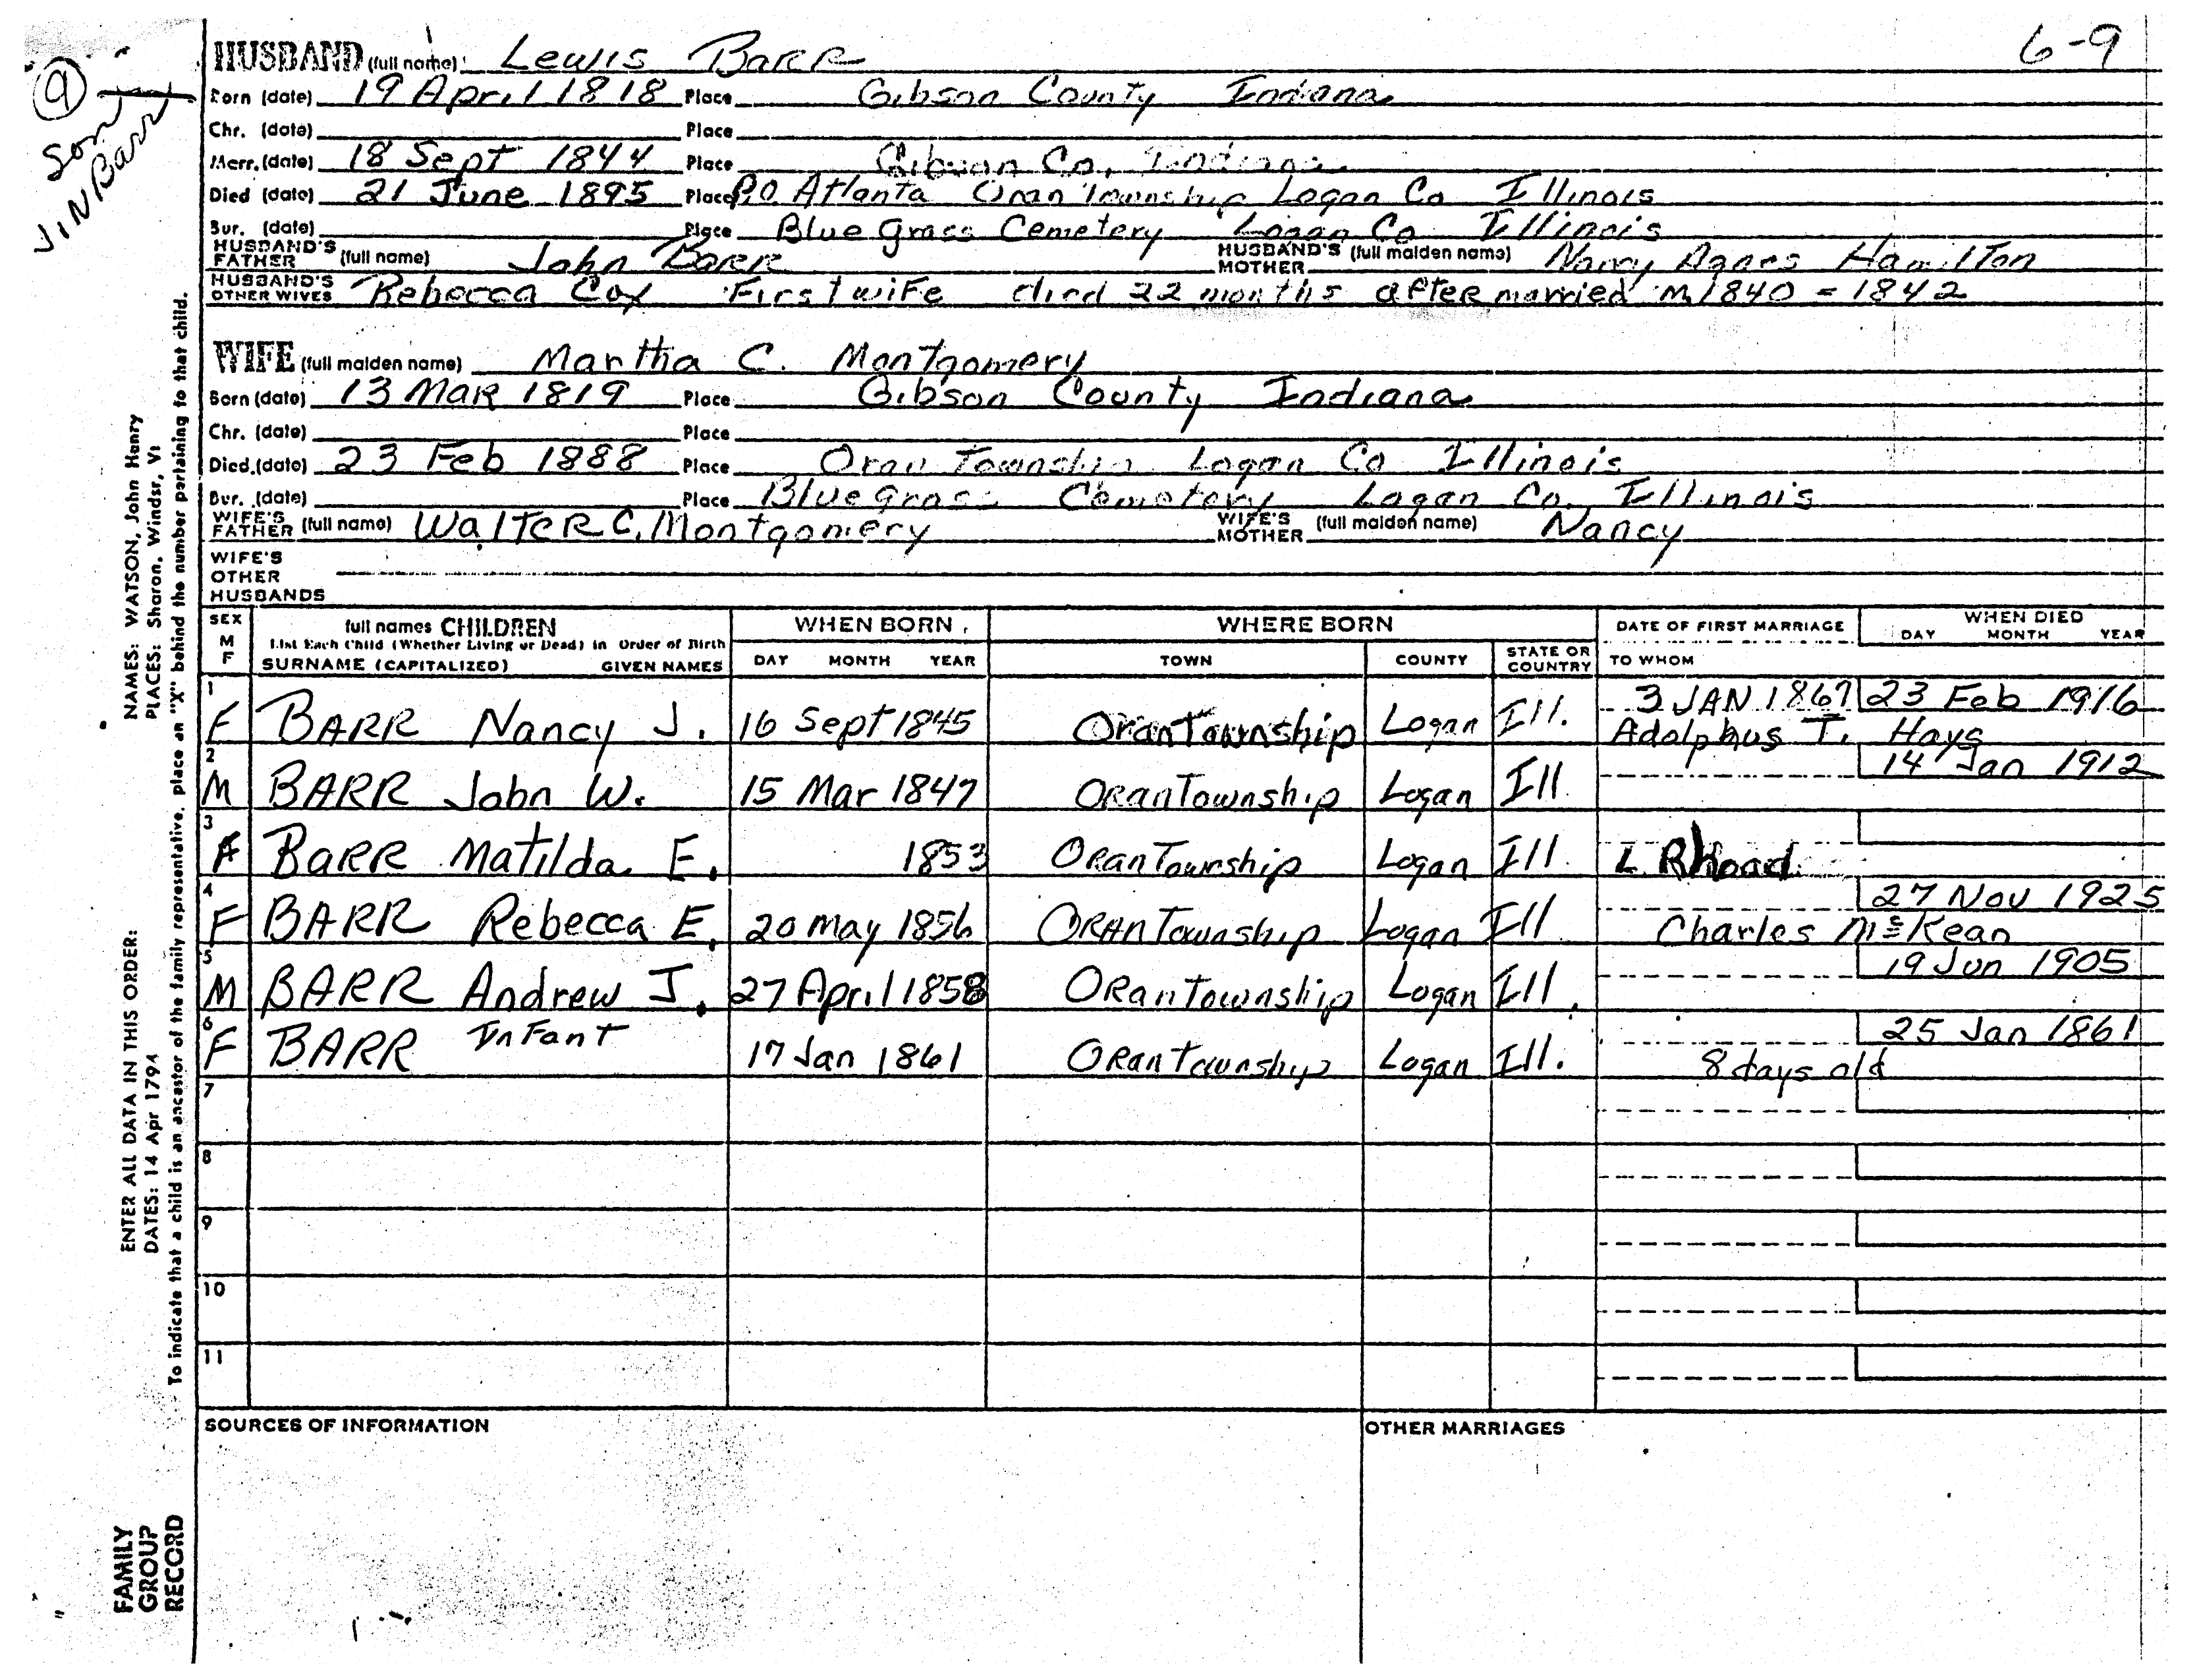 6-9
9
Son
J N Barr
HUSBAND (full name) Lewis Barr
Born (date) 19 April 1818 Place Gibson County Indiana
Chr. (date) Place
Marr. (date) 18 Sept 1844 Place Gibson Co, Indiana
Died (date) 21 June 1895 Place P.O. Atlanta Oran Township Logan Co Illinois
Bur. (date) Place Blue Grass Cemetery Logan Co Illinois
HUSBAND'S FATHER (full name) John Barr HUSBAND'S MOTHER (full maiden name) Nancy Agnes Hamilton
HUSBAND'S OTHER WIVES Rebecca Cox First wife died 22 months after married m 1840 = 1842
WIFE (full maiden name) Martha C. Montgomery
Born (date) 13 Mar 1819 Place Gibson County Indiana
Chr. (date) Place
Died (date) 23 Feb 1888 Place Oran Township Logan Co Illinois
Bur. (date) Place Blue grass Cemetery Logan Co. Illinois
WIFE'S FATHER (full name) Walter C. Montgomery WIFE'S MOTHER (full maiden name) Nancy
WIFE'S
OTHER
HUSBANDS
SEX M F full names CHILDREN WHEN BORN WHERE BORN DATE OF FIRST MARRIAGE WHEN DIED
List Each Child (Whether Living or Dead) in Order of Birth DAY MONTH YEAR
SURNAME (CAPITALIZED) GIVEN NAMES DAY MONTH YEAR TOWN COUNTY STATE OR COUNTRY TO WHOM
1 3 JAN 1867 23 Feb 1916
F BARR Nancy J. 16 Sept 1845 Oran Township Logan Ill. Adolphus T. Hays
2 14 Jan 1912
M BARR John W. 15 Mar 1847 Oran Township Logan Ill
3
F Barr Matilda E. 1853 Oran Township Logan Ill L Rhoad
4 27 Nov 1925
F BARR Rebecca E. 20 May 1856 Oran Township Logan Ill Charles McKean
5 19 Jun 1905
M BARR Andrew J. 27 April 1858 Oran Township Logan Ill.
6 25 Jan 1861
F BARR Infant 17 Jan 1861 Oran Township Logan Ill. 8 days old
7
8
9
10
11
SOURCES OF INFORMATION OTHER MARRIAGES
NAMES: WATSON, John Henry
PLACES: Sharon, Windsr, Vt
ENTER ALL DATA IN THIS ORDER:
DATES: 14 Apr 1794
To indicate that a child is an ancestor of the family representative, place an "X" behind the number pertaining to that child.
FAMILY
GROUP
RECORD